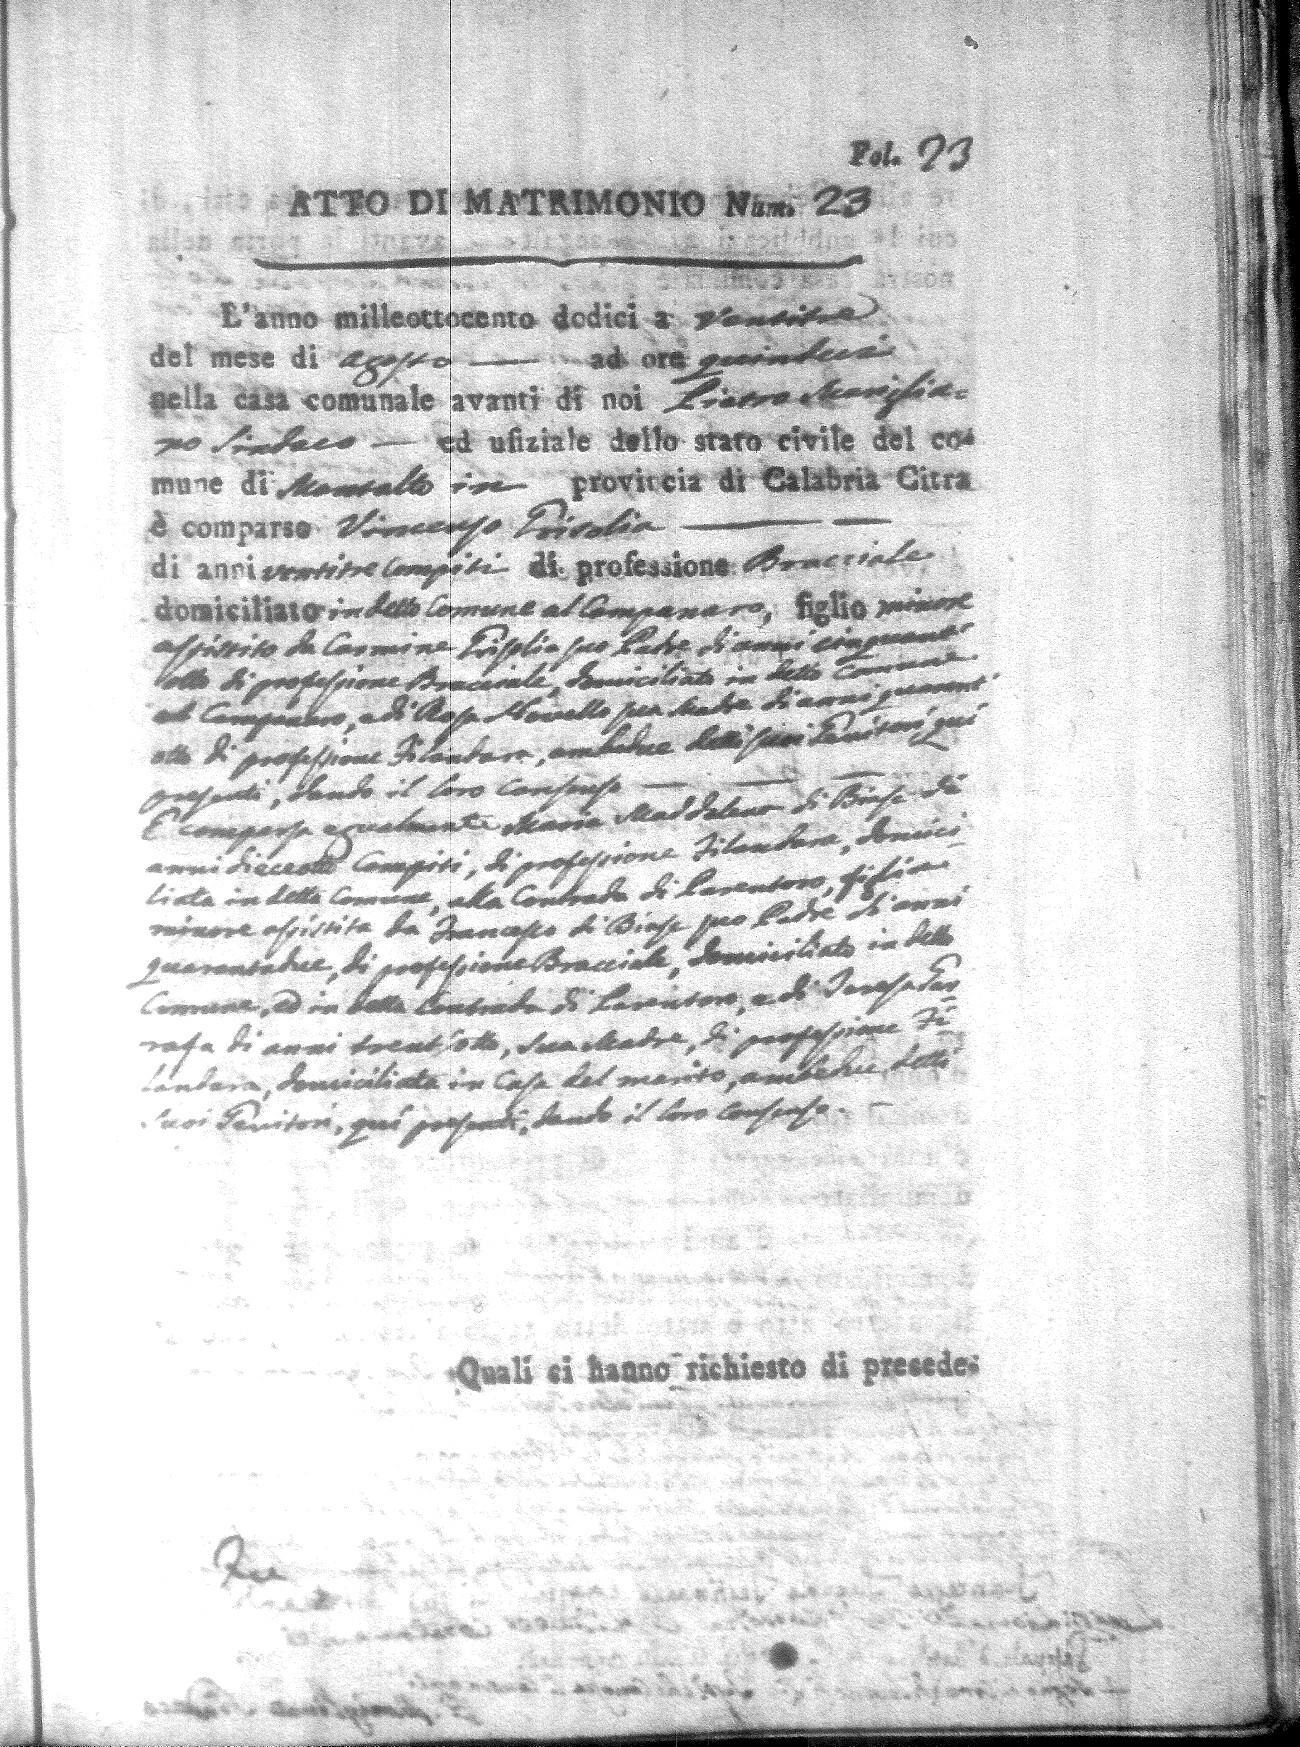 Fol. 23
ATTO DI MATRIMONIO Num. 23
L'anno milleottocento dodici a ventitre
del mese di agosto — ad ore quindeci
nella casa comunale avanti di noi Pietro Maniglia=
no Sindaco — ed ufiziale dello stato civile del co-
mune di Montalto in provincia di Calabria Citra
è comparso Vincenzo Trisolia — —
di anni ventitre compiti di professione Bracciale
domiciliato in detto Comune al Companaro, figlio minore
assistito da Carmine Trisolia suo Padre di anni cinquant'
otto di professione Bracciale, domiciliato in detto Comune
al Companaro, e di Rosa Novello sua Madre di anni quarant'
otto di professione Filandara, ambedue detti suoi Genitori, quì
presenti, dando il loro consenso — — —
È comparsa egualmente Maria Maddalena di Biase di
anni dieceotto compiti, di professione Filandara, domici-
liata in detto Comune, alla Contrada di Parantoro, figlia
minore assistita da Francesco di Biase suo Padre di anni
quarantadue, di professione Bracciale, domiciliato in detto
Comune, ed in detta Contrada di Parantoro, e di Teresa
di anni trent'otto, sua Madre, di professione Fi-
landara, domiciliata in casa del marito, ambedue detti
suoi Genitori, quì presenti, dando il loro consenso. —
Quali ci hanno richiesto di precede-